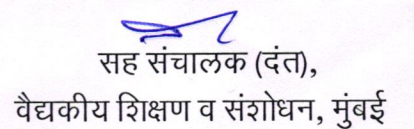 सह संचालक (दंत),
वैद्यकीय शिक्षण व संशोधन, मुंबई